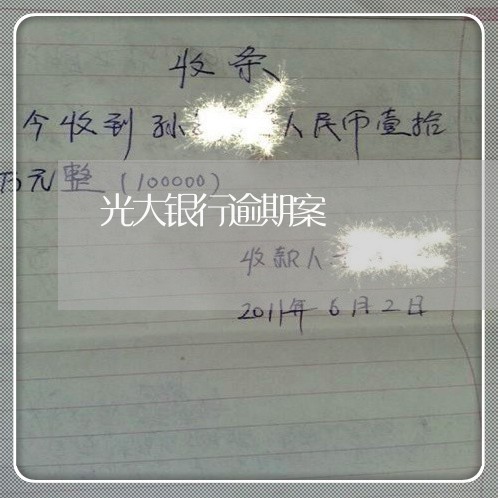 收条
今收到 孙 人民币壹拾
万元整 (100000)
光大银行逾期案
收款人
2011年 6月2日